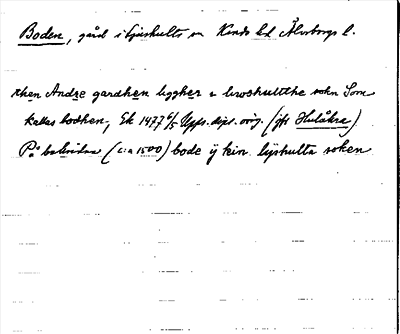 Boden, gård i Ljushults sn Kinds hd Älvsborgs l.
then Andre gardhen liggher i liwshultthe sokn Som
kallas bodhen, Ek 1477 6/5 Upps. dipl. orig. (jfr Hulåkra)
På baksidan (c:a 1500) bode ÿ kin lÿshulta soken